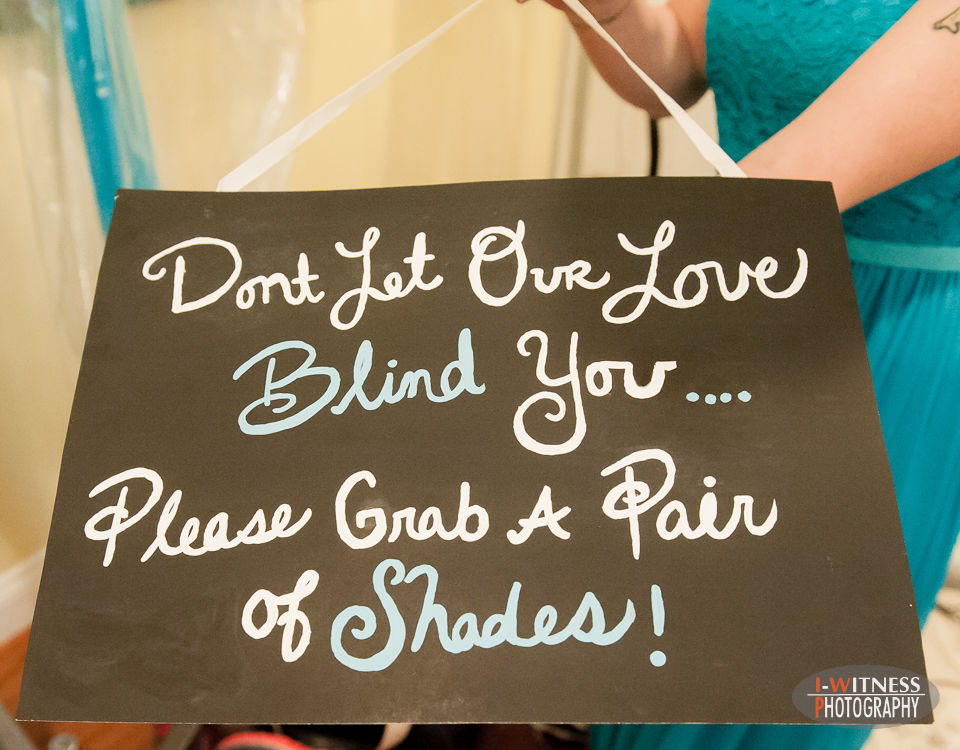 Dont Let Our Love
Blind You....
Please Grab A Pair
of Shades!
I-WITNESS
PHOTOGRAPHY